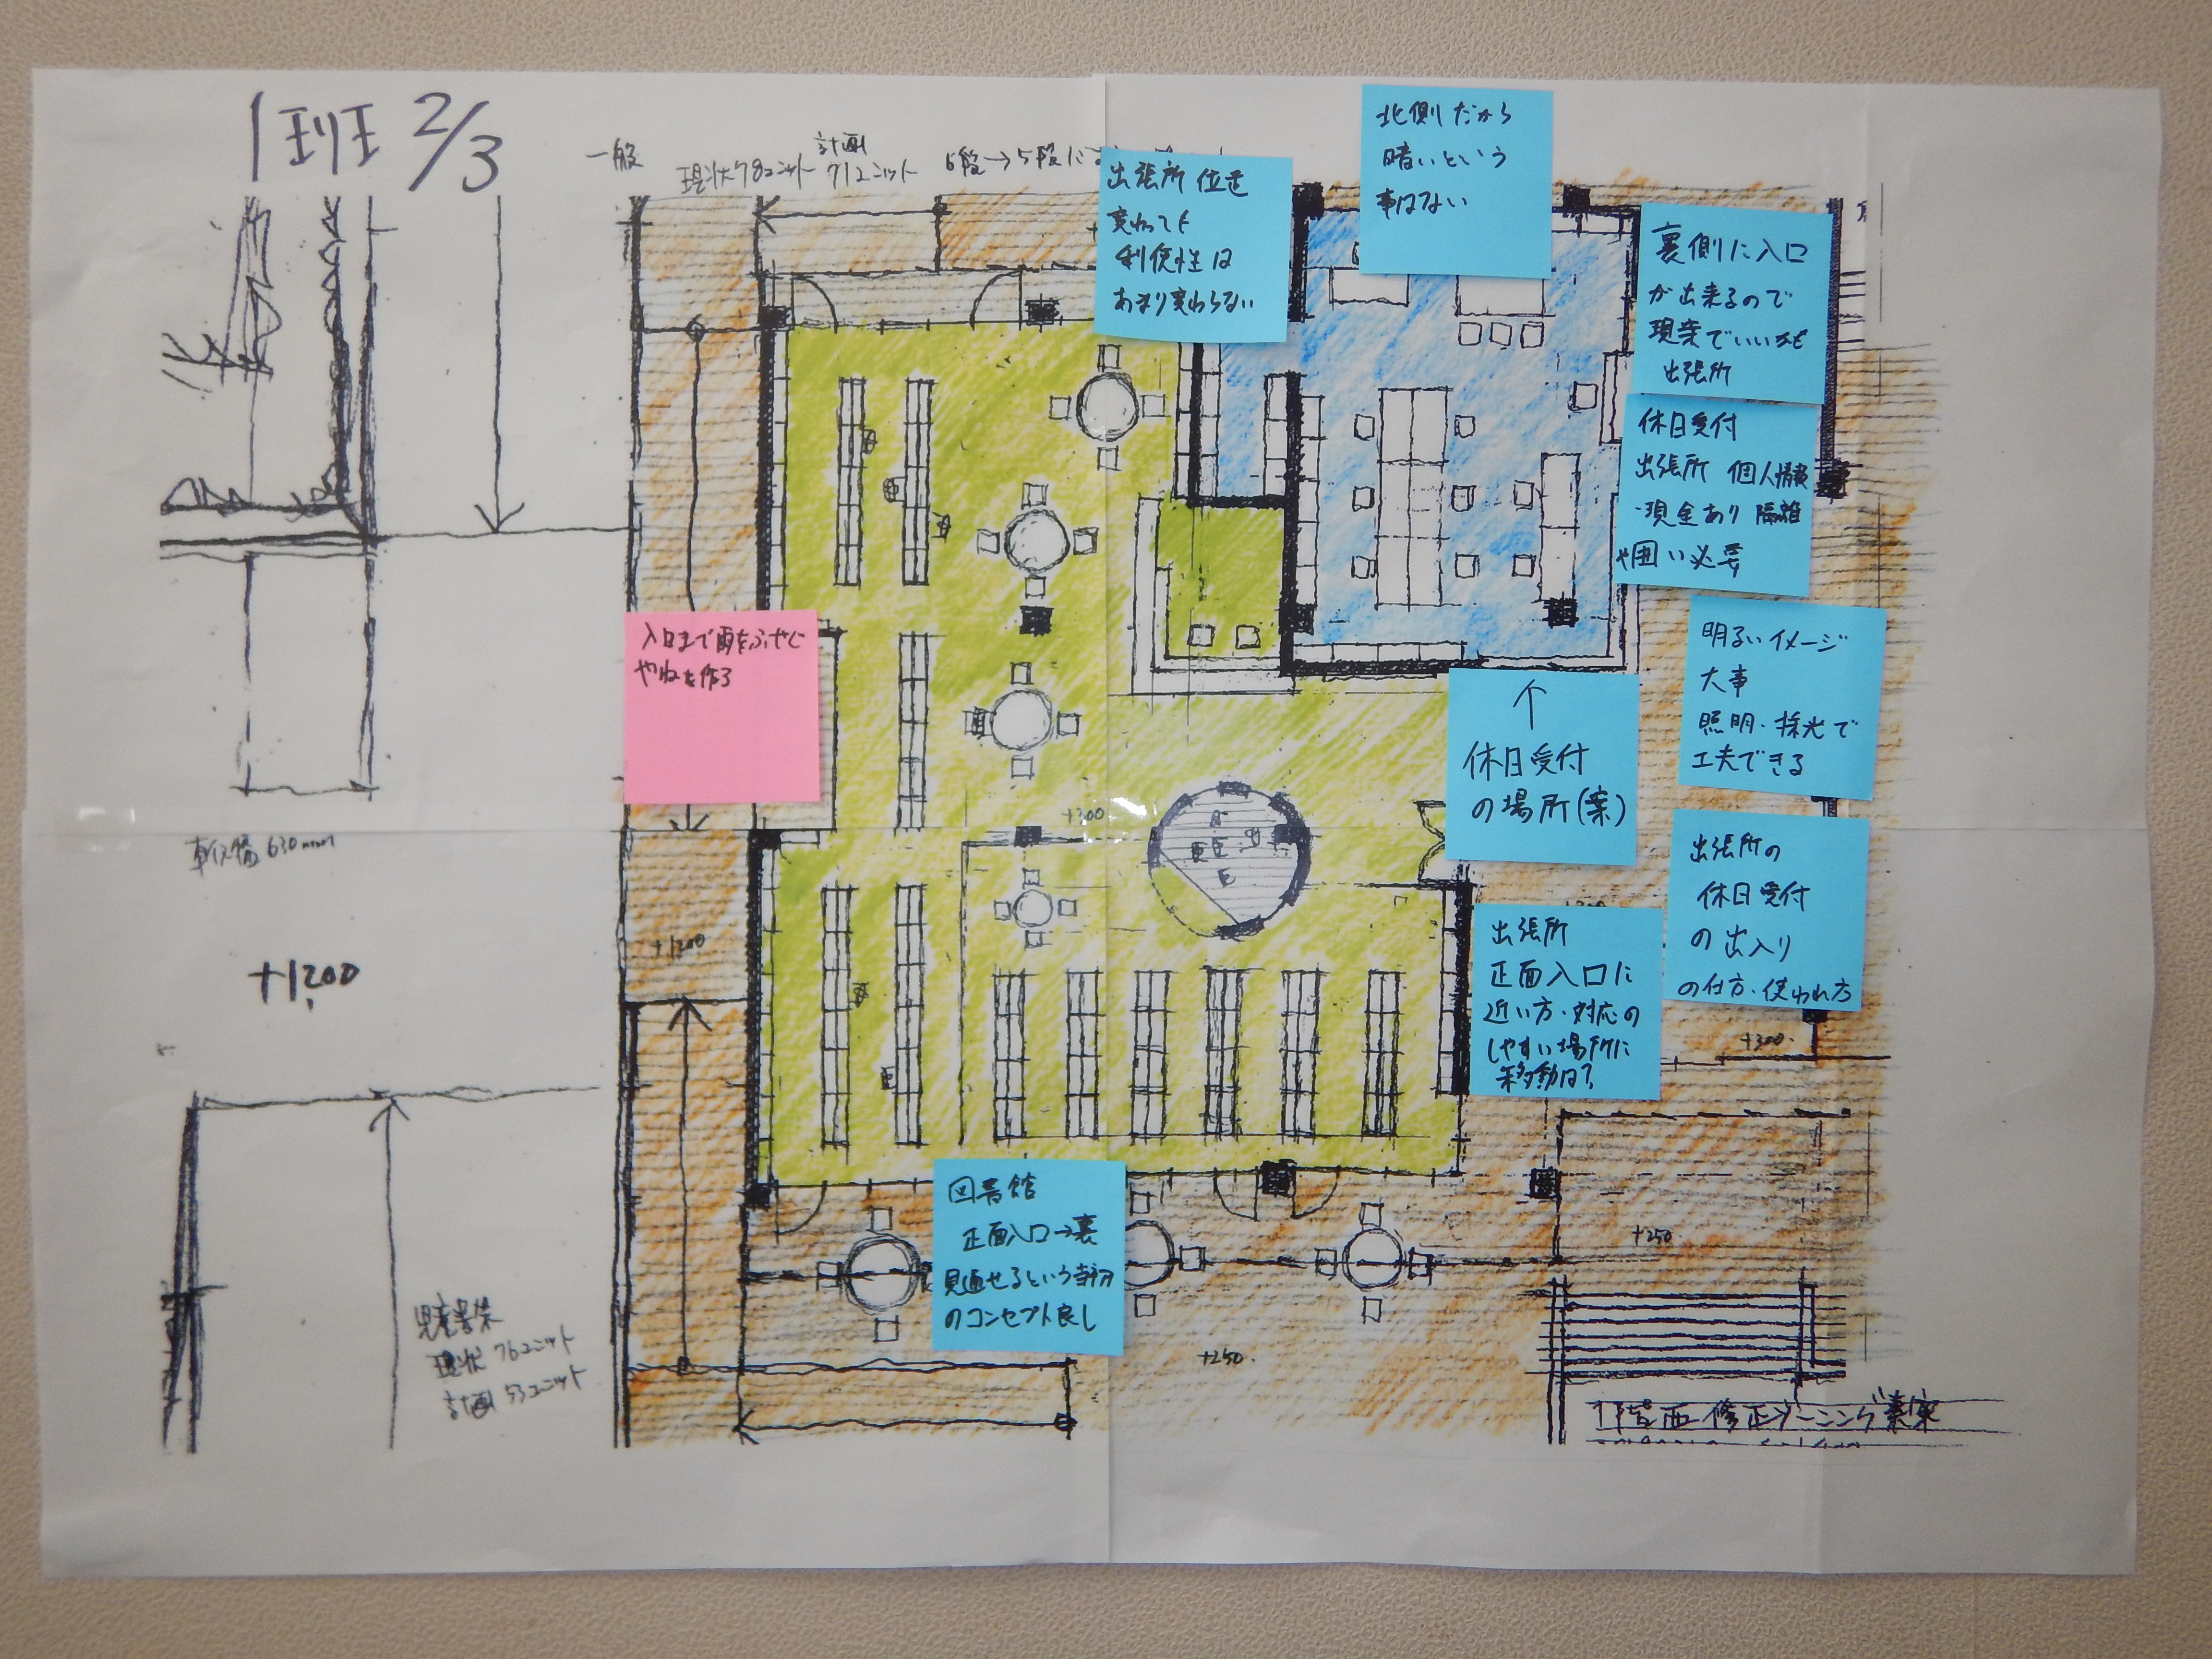 1班 2/3
一般
現状78ユニット
計画
71ユニット
6段→5段に
出張所 位置
変わっても
利便性は
あまり変わらない
北側だから
暗いという
事はない
裏側に入口
が出来るので
現案でいいかも
出張所
休日受付
出張所 個人情報
・現金あり 隔離
や囲い必要
入口まで雨をふせぐ
やねを作る
明るいイメージ
大事
照明・採光で
工夫できる
↑
休日受付
の場所(案)
出張所の
休日受付
の出入り
の仕方・使われ方
出張所
正面入口に
近い方・対応の
しやすい場所に
移動は?
図書館
正面入口→裏
見通せるという当初
のコンセプト良し
車イス幅 630mm
+1,200
+1200
+300
+300
+250
+250
児童書架
現状 76ユニット
計画 53ユニット
1階西修正ゾーニング素案